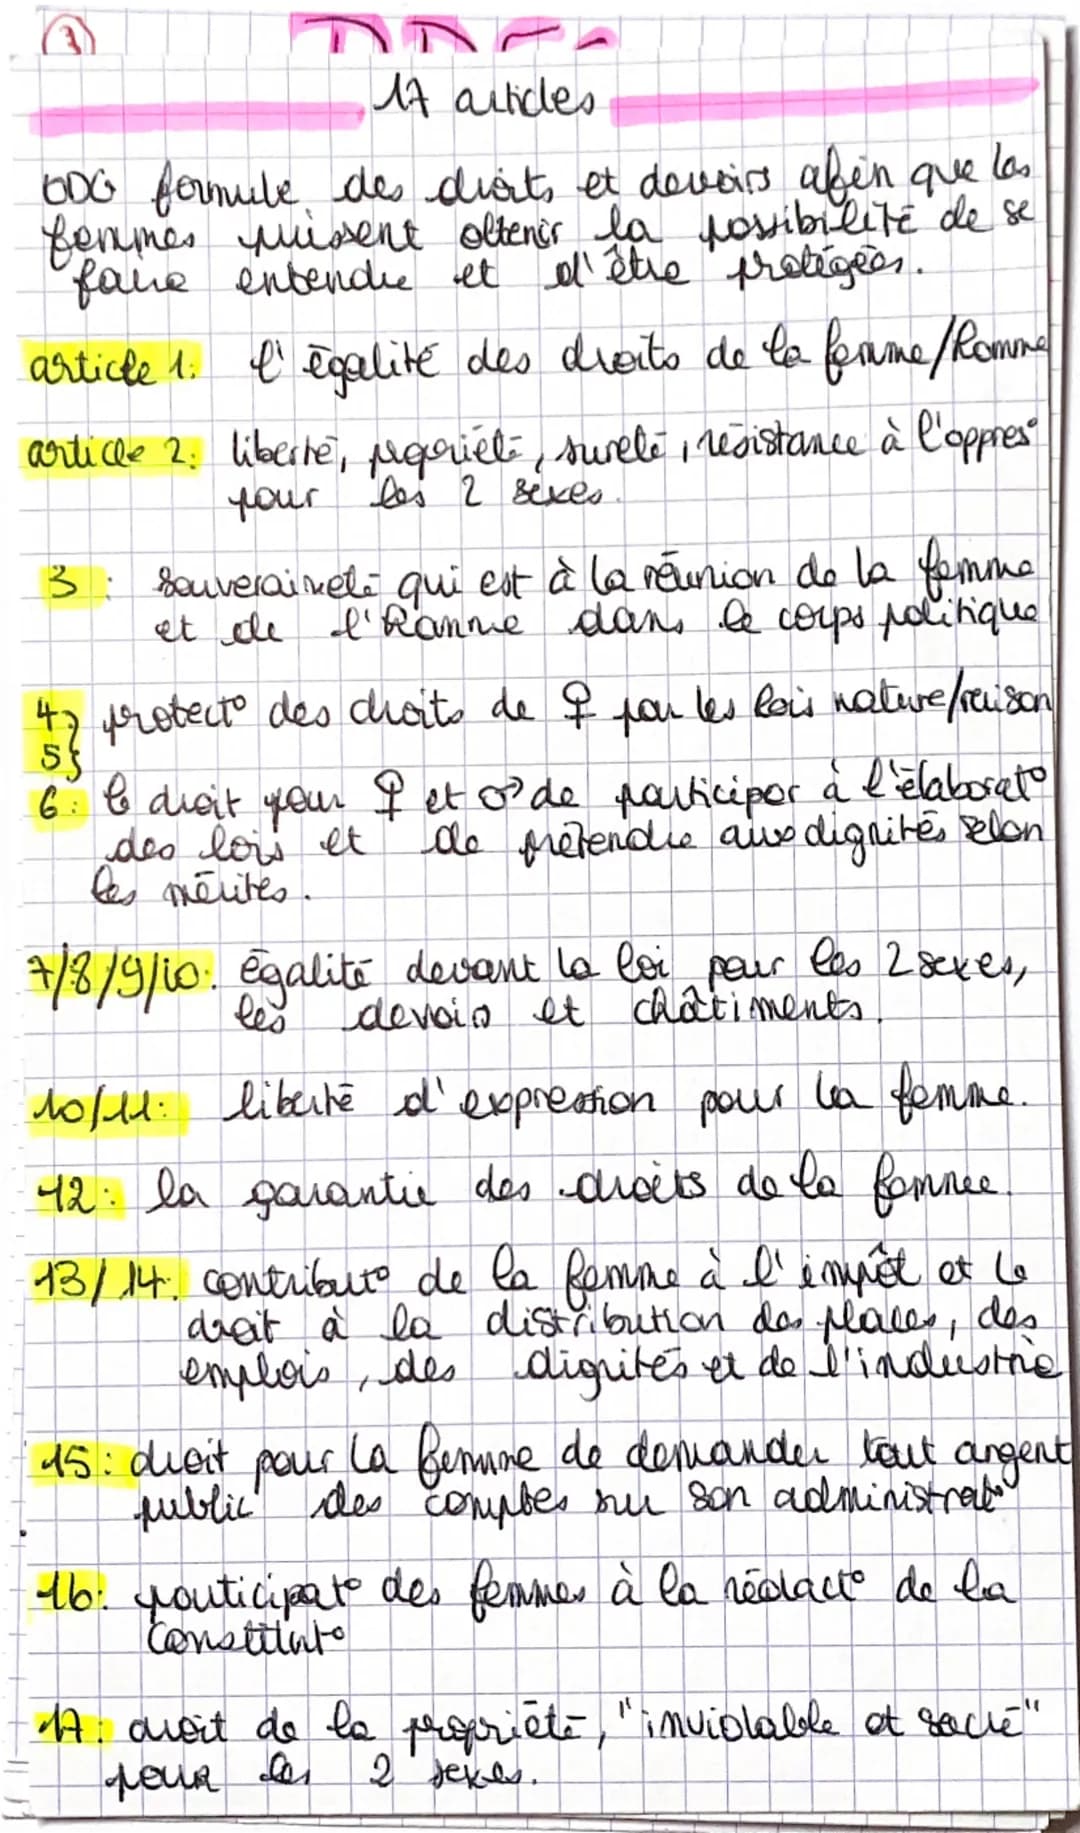 3
17 articles
ODG formule des droits et devoirs afin que les
femmes puissent obtenir la possibilité de se
faire entendre et d'être protégées.
article 1: l'égalité des droits de la femme/homme
article 2: liberté, propriété, sureté, résistance à l'oppres°
pour les 2 sexes.
3: souveraineté qui est à la réunion de la femme
et de l'homme dans le corps politique
4 } protect° des droits de ♀ par les lois nature/raison
5 }
6: le droit pour ♀ et ♂ de participer à l'élaborat°
des lois et de prétendre aux dignités selon
les mérites.
7/8/9/10: égalité devant la loi pour les 2 sexes,
les devoirs et châtiments.
10/11: liberté d'expression pour la femme.
12: la garantie des droits de la femme.
13/14: contribut° de la femme à l'impôt et le
droit à la distribution des places, des
emplois, des dignités et de l'industrie
15: droit pour la femme de demander tout argent
public des comptes sur son administrat°
16: participat° des femmes à la rédact° de la
Constitut°
17: droit de la propriété, "inviolable et sacré"
pour les 2 sexes.